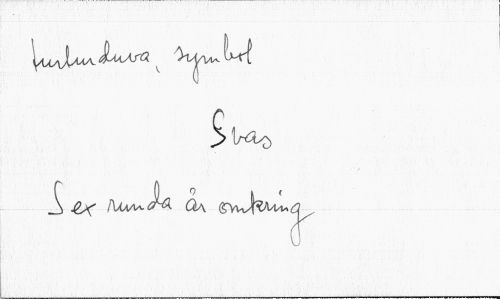 turturduva, symbol
Svas
Sex runda år omkring